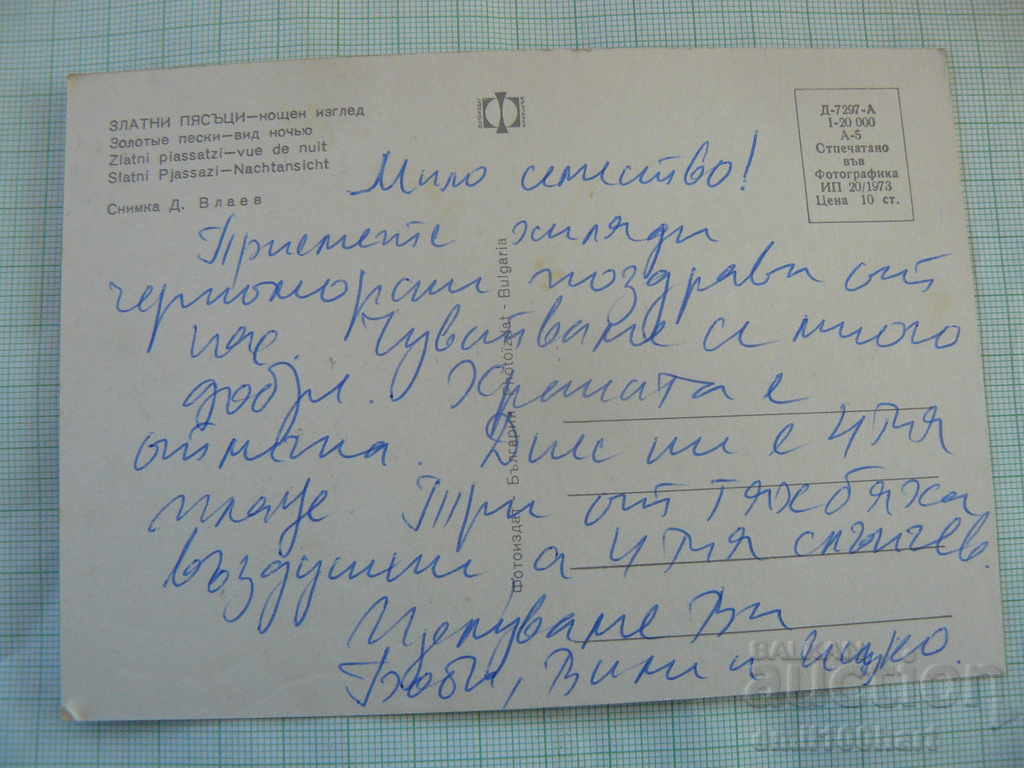 ЗЛАТНИ ПЯСЪЦИ—нощен изглед
Золотые пески—вид ночью
Zlatni piassatzi—vue de nuit
Slatni Pjassazi—Nachtansicht
Снимка Д. Влаев
Д-7297-А
I-20 000
А-5
Отпечатано
във
Фотографика
ИП 20/1973
Цена 10 ст.
Мило семейство!
Приемете хиляди
черноморски поздрави от
нас. Чувстваме се много
добре. Храната е
отлична. Днес ни е 4тия
плаж. Три от тях бяха
въздушни а 4тия слънчев.
Целуваме Ви
Боби, Вили и
Фотоиздат България Photoizdat - Bulgaria
BALKAN
auction